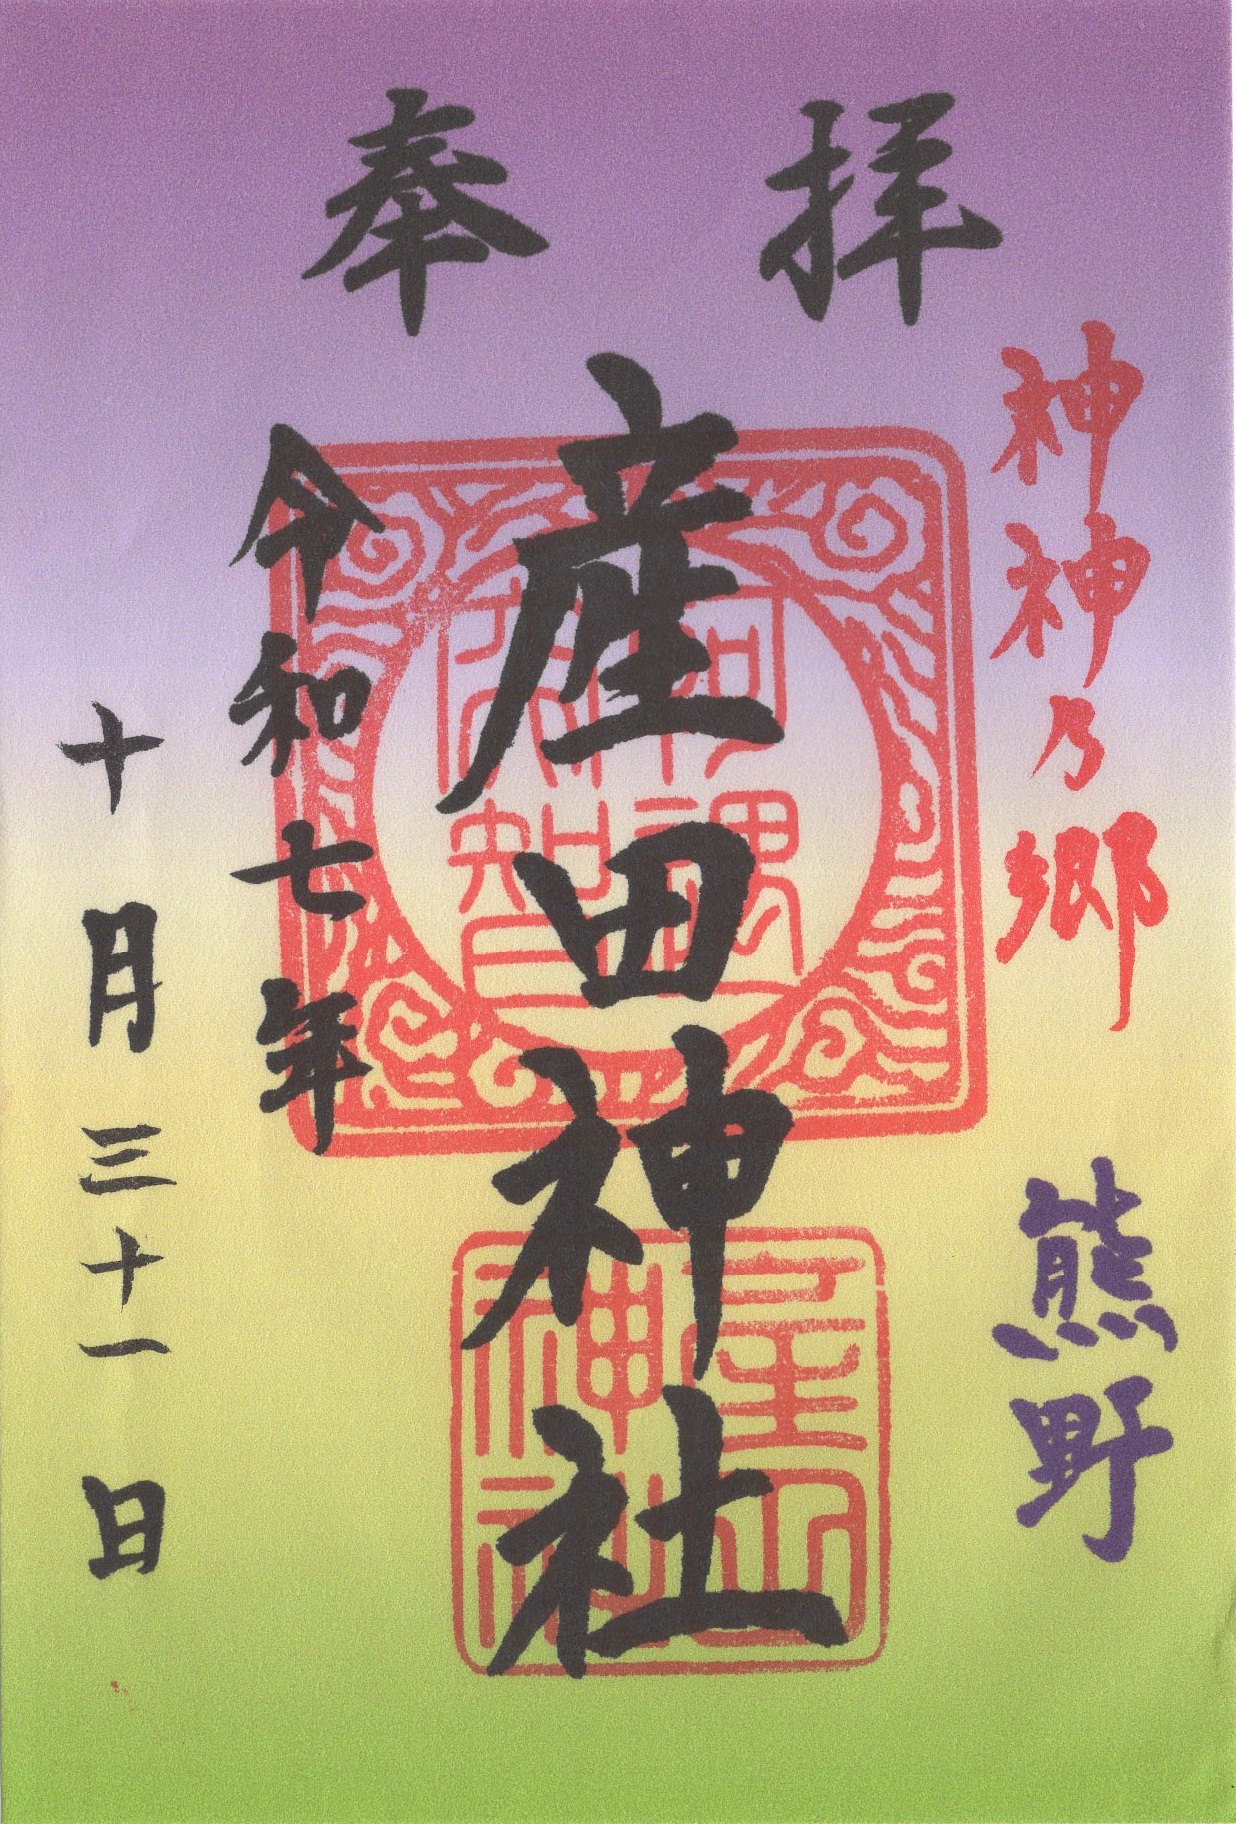 奉拝
神神乃郷
熊野
産田神社
令和七年
十月三十一日